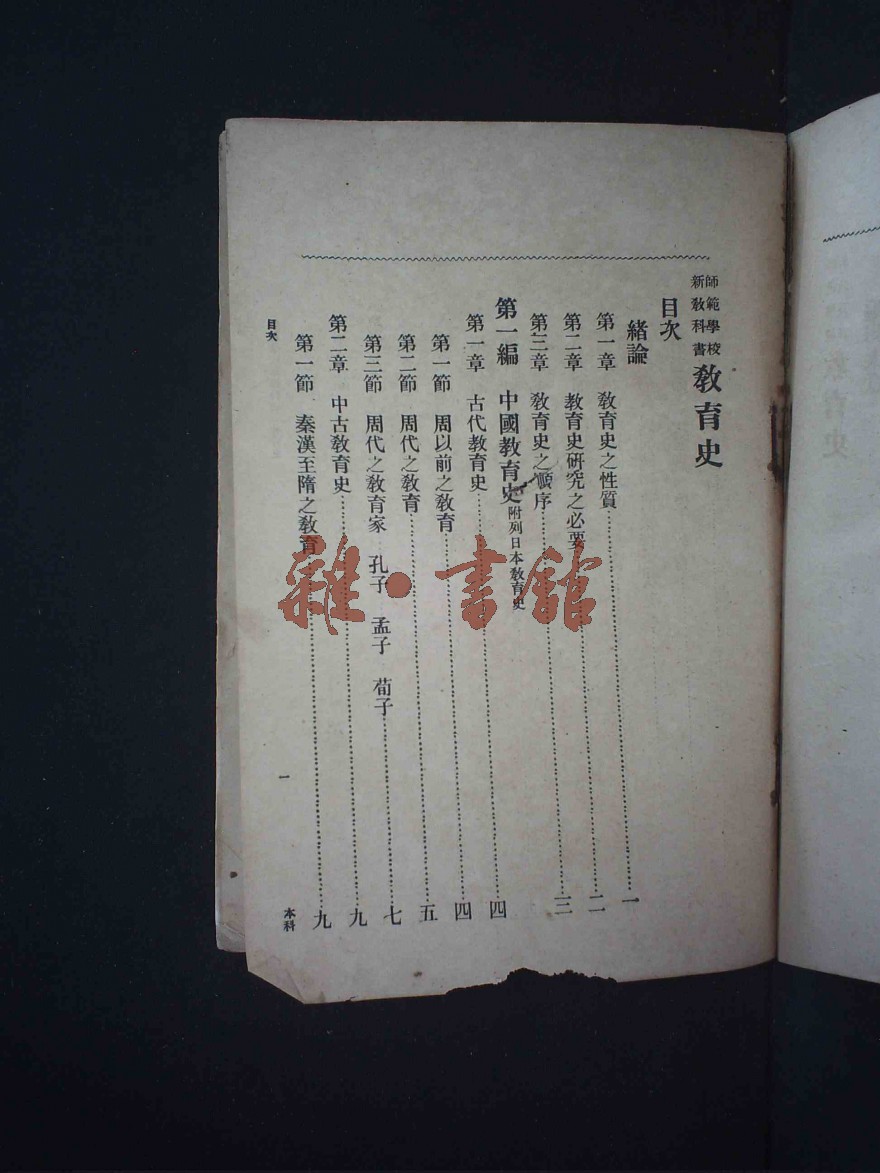 師範學校
新敎科書
敎育史
目次
緒論
第一章 敎育史之性質……一
第二章 教育史研究之必要……二
第三章 敎育史之順序……三
第一編 中國敎育史附列日本敎育史
第一章 古代敎育史……四
第一節 周以前之敎育……四
第二節 周代之敎育……五
第三節 周代之敎育家 孔子 孟子 荀子……七
第二章 中古敎育史……九
第一節 秦漢至隋之敎育……九
目次
一
本科
雜·書館